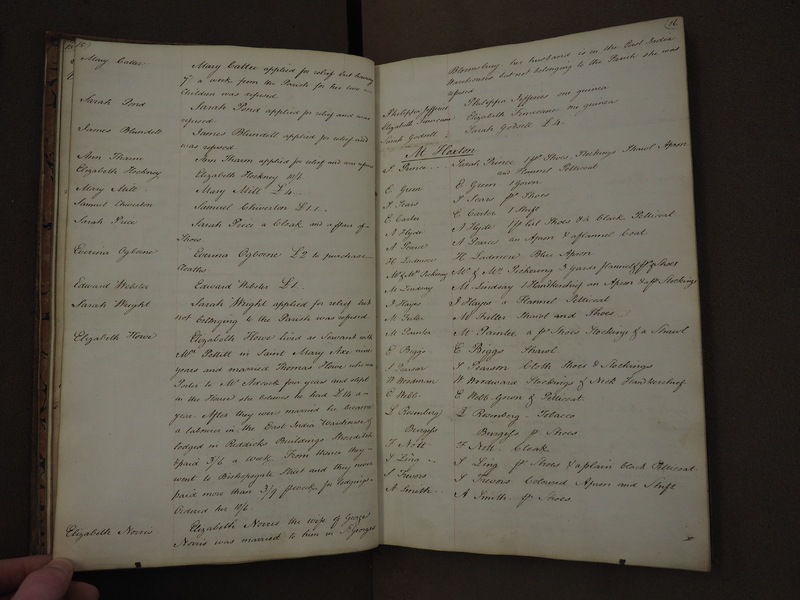 15
Mary Cater Mary Cater applied for relief but having
7/ a week from the Parish for her two
Children was refused
Sarah Pond Sarah Pond applied for relief and was
refused
James Blundell James Blundell applied for relief and
was refused
Ann Thurm Ann Thurm applied for relief and was refused
Elizabeth Hockney Elizabeth Hockney 10/6
Mary Mill Mary Mill £4
Samuel Chiverton Samuel Chiverton £1.1
Sarah Price Sarah Price a Cloak and a pair of
Shoes
Everina Ogborne Everina Ogborne £2 to purchase
Cloaths
Edward Webster Edward Webster £1
Sarah Wright Sarah Wright applied for relief but
not belonging to the Parish was refused
Elizabeth Howe Elizabeth Howe lived as Servant with
Mr. Pellitt in Saint Mary Axe nine
years and married Thomas Howe who was
Porter to Mr. Adcock four years and slept
in the House she believes he had £14 a
year. After they were married he became
a labourer in the East India Warehouse &
lodged in Reddicks Buildings Shoreditch
& paid 3/6 a week. From thence they
went to Bishopsgate Street and they never
paid more than 3/9 week for lodgings
Ordered her 10/6
Elizabeth Norris Elizabeth Norris the wife of George
Norris was married to him in St. Georges
16
Bloomsbury her husband is in the East India
Warehouses but not belonging to the Parish she was
refused
Philippa Jefferies Philippa Jefferies one guinea
Elizabeth Elizabeth one guinea
Sarah Godsell Sarah Godsell £4
M Hoxton
S Prince Sarah Prince 1 pr. Shoes, Stockings Shawl Apron
and Flannel Petticoat
E Green E Green 1 Gown
I Sears I Sears pr Shoes
E Carter E Carter 1 Shift
N Hyde N Hyde 1 pr Shoes & a black Petticoat
N Pearce N Pearce an Apron & a flannel Coat
H Ladmore H Ladmore Blue Apron
Mr & Mrs Pickering Mr. & Mrs. Pickering 3 yards flannel & pr of Shoes
M Lindsay M Lindsay 1 Handkerchief an Apron & a pr Stockings
I Hayes I Hayes a Flannel Petticoat
M Fuller M Fuller Shawl and Shoes
M Painter M Painter a pr Shoes Stockings & a Shawl
E Biggs E Biggs Shawl
I Pearson I Pearson Cloth Shoes & Stockings
W Woodward W Woodward Stockings & Neck Handkerchief
E Webb E Webb Gown & Petticoat
L Rosenberg L Rosenberg Tobacco
Burgess Burgess pr Shoes
F Nott F Nott Cloak
I Ling I Ling pr Shoes & a plain black Petticoat
I Trevors I Trevors Coloured Apron and Shift
A Smith A Smith pr Shoes